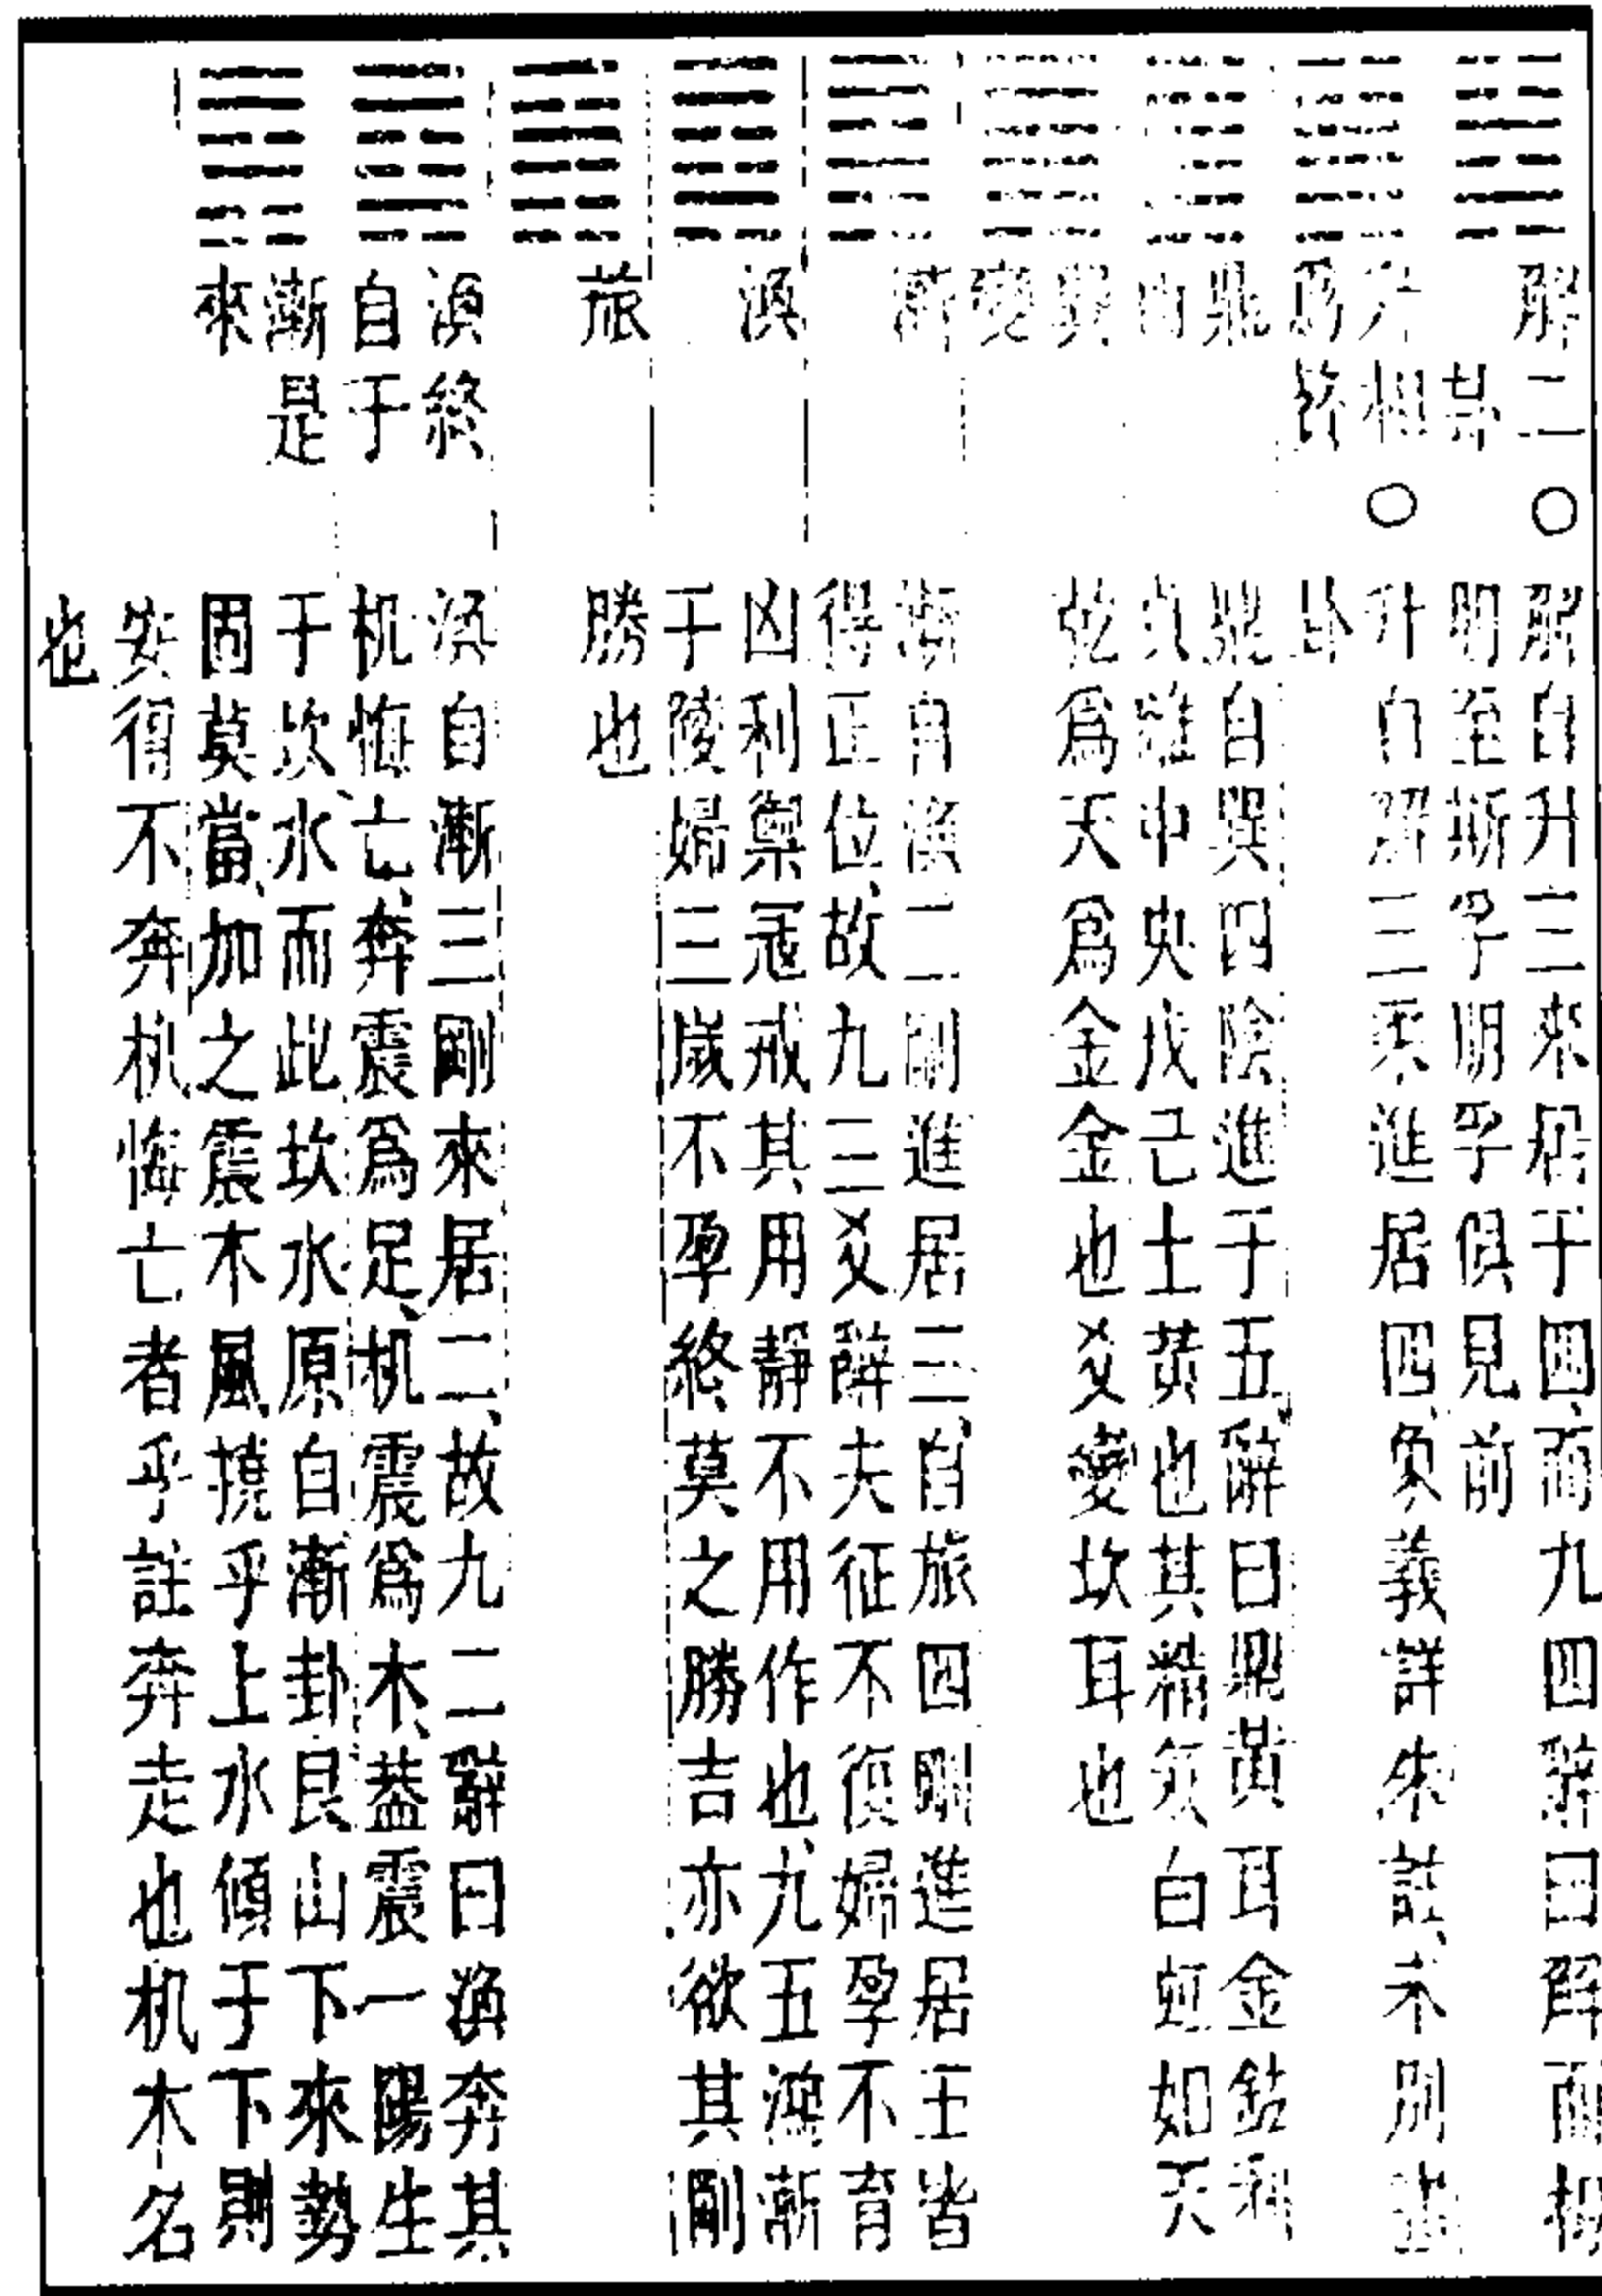 解二〇解自升三來居于四而九四辭曰解而拇
朋至斯孚朋孚俱見前
升相〇升自解三柔進居四爻義詳朱註不別
為
卦
鼎自巽四陰進于五辭曰鼎黃耳金鉉利
貞離中央戊己土黃也其精白虹如天
乾爲天爲金金也爻變坎耳也
漸
漸自渙二剛進居三自旅四剛進居五皆
得正位故九三爻辭夫征不復婦孕不育
渙
凶利禦寇戒其用靜不用作也九五鴻漸
于陵婦三歲不孕終莫之勝吉亦欲其剛
旅
勝也
渙終
自于
渙自漸三剛來居二故九二辭曰渙奔其
机悔亡奔震爲足机震爲木葢震一陽生
漸是
來
于坎水而此坎水原自漸卦艮山下來勢
固莫當加之震木風撓乎上水傾于下則
安得不奔机悔亡者乎註奔走也机木名
也